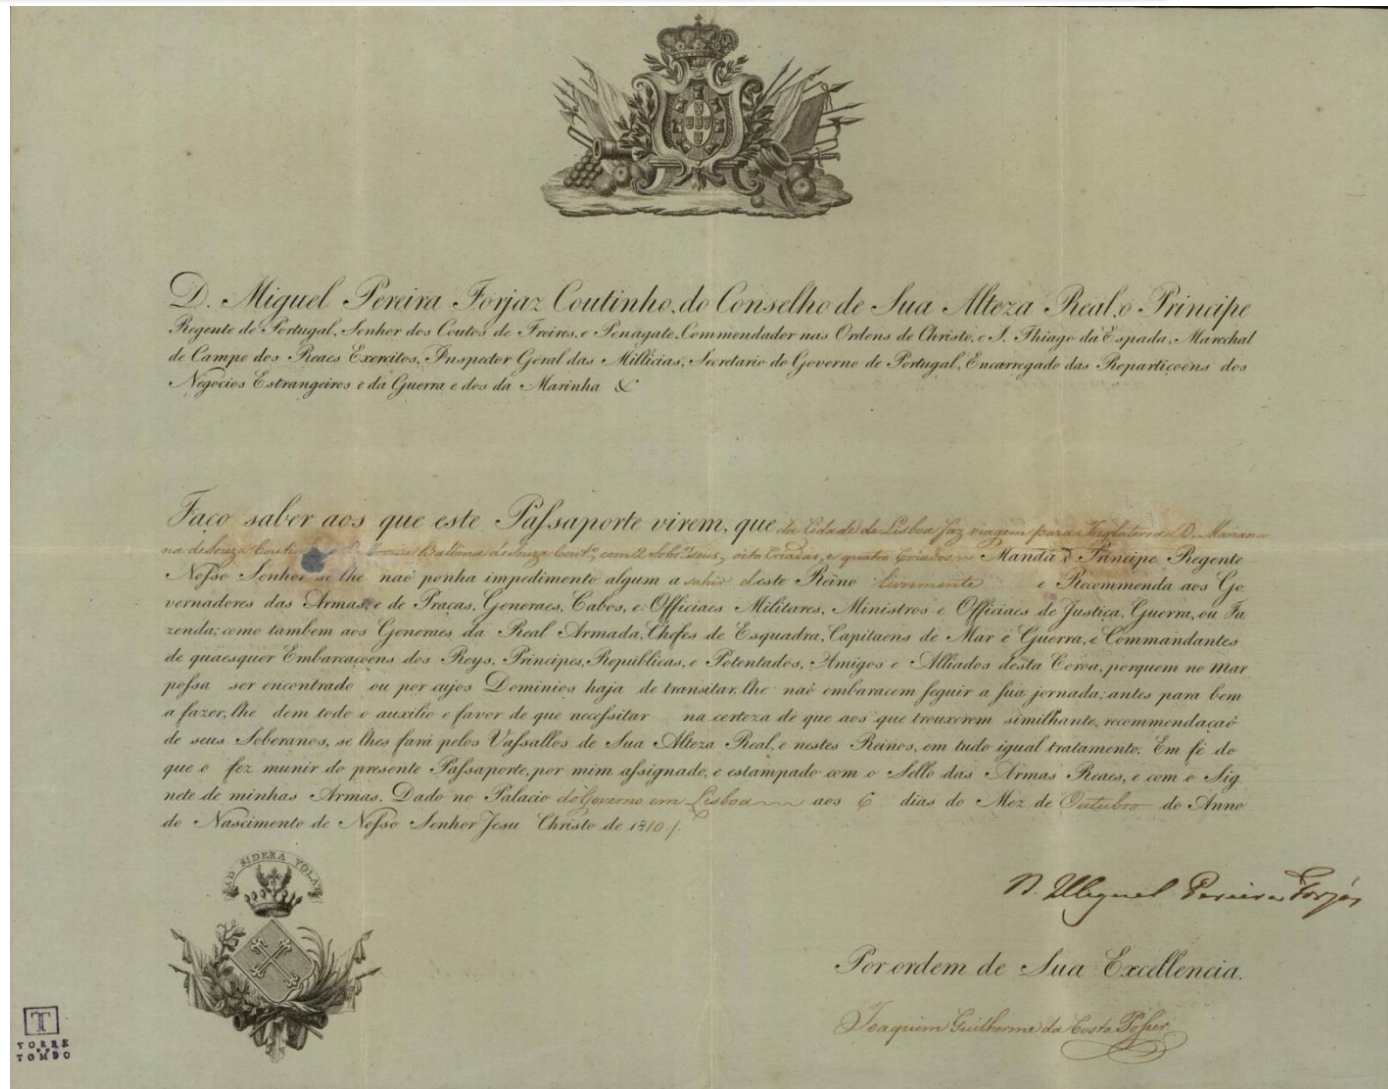 D. Miguel Pereira Forjaz Coutinho, do Conselho de Sua Alteza Real, o Principe
Regente de Portugal, Senhor dos Coutos de Freires, e Penagate, Commendador nas Ordens de Christo, e S. Thiago da Espada, Marechal
de Campo dos Reaes Exercitos, Inspector Geral das Millicias, Secretario do Governo de Portugal, Encarregado das Repartiçoens dos
Negocios Estrangeiros e da Guerra e dos da Marinha &
Faço saber aos que este Paſsaporte virem, que da Cidade de Lisboa faz viagem para Inglaterra D. Maria
na de Souza de Souza Cout.º, com 2 oito Criadas, e quatro Criados Manda o Principe Regente
Noſso Senhor se lhe naõ ponha impedimento algum a sahir deste Reino livremente e Recommenda aos Go
vernadores das Armas, e de Praças, Generaes, Cabos, e Officiaes Militares, Ministros e Officiaes de Justiça, Guerra, ou Fa
zenda; como tambem aos Generaes da Real Armada, Chefes de Esquadra, Capitaens de Mar e Guerra, e Commandantes
de quaesquer Embarcaçoens dos Reys, Principes, Republicas, e Potentados, Amigos e Alliados desta Coroa, porquem no mar
poſsa ser encontrado ou por cujos Dominios haja de transitar, lhe naõ embaracem ſeguir a ſua jornada; antes para bem
a fazer, lhe dem todo o auxilio e favor de que neceſsitar na certeza de que aos que trouxerem similhante recommendaçaõ
de seus Soberanos, se lhes fará pelos Vaſsallos de Sua Alteza Real, e nestes Reinos, em tudo igual tratamento. Em fé do
que o fez munir do presente Paſsaporte, por mim aſsignado, e estampado com o Sello das Armas Reaes, e com o Sig
nete de minhas Armas. Dado no Palacio do Governo em Lisboa aos 6 dias do Mez de Outubro do Anno
do Nascimento de Noſso Senhor Jesu Christo de 1810
AD SIDERA VOLAT
D. Miguel Pereira Forjaz
Por ordem de Sua Excellencia.
Joaquim Guilherme da Costa Poſser
T
TORRE
DO
TOMBO